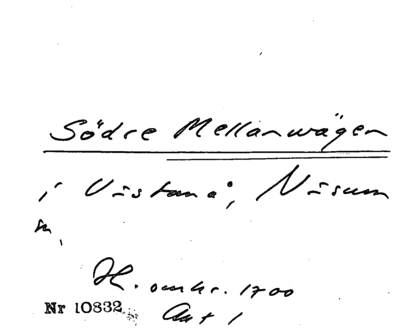 Södre Mellanvägen
i Västanå, Näsum
H. omkr. 1700
Nr 10832
Ant 1